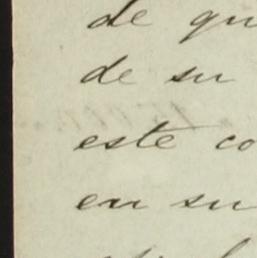 de qu
de su
este co
en su